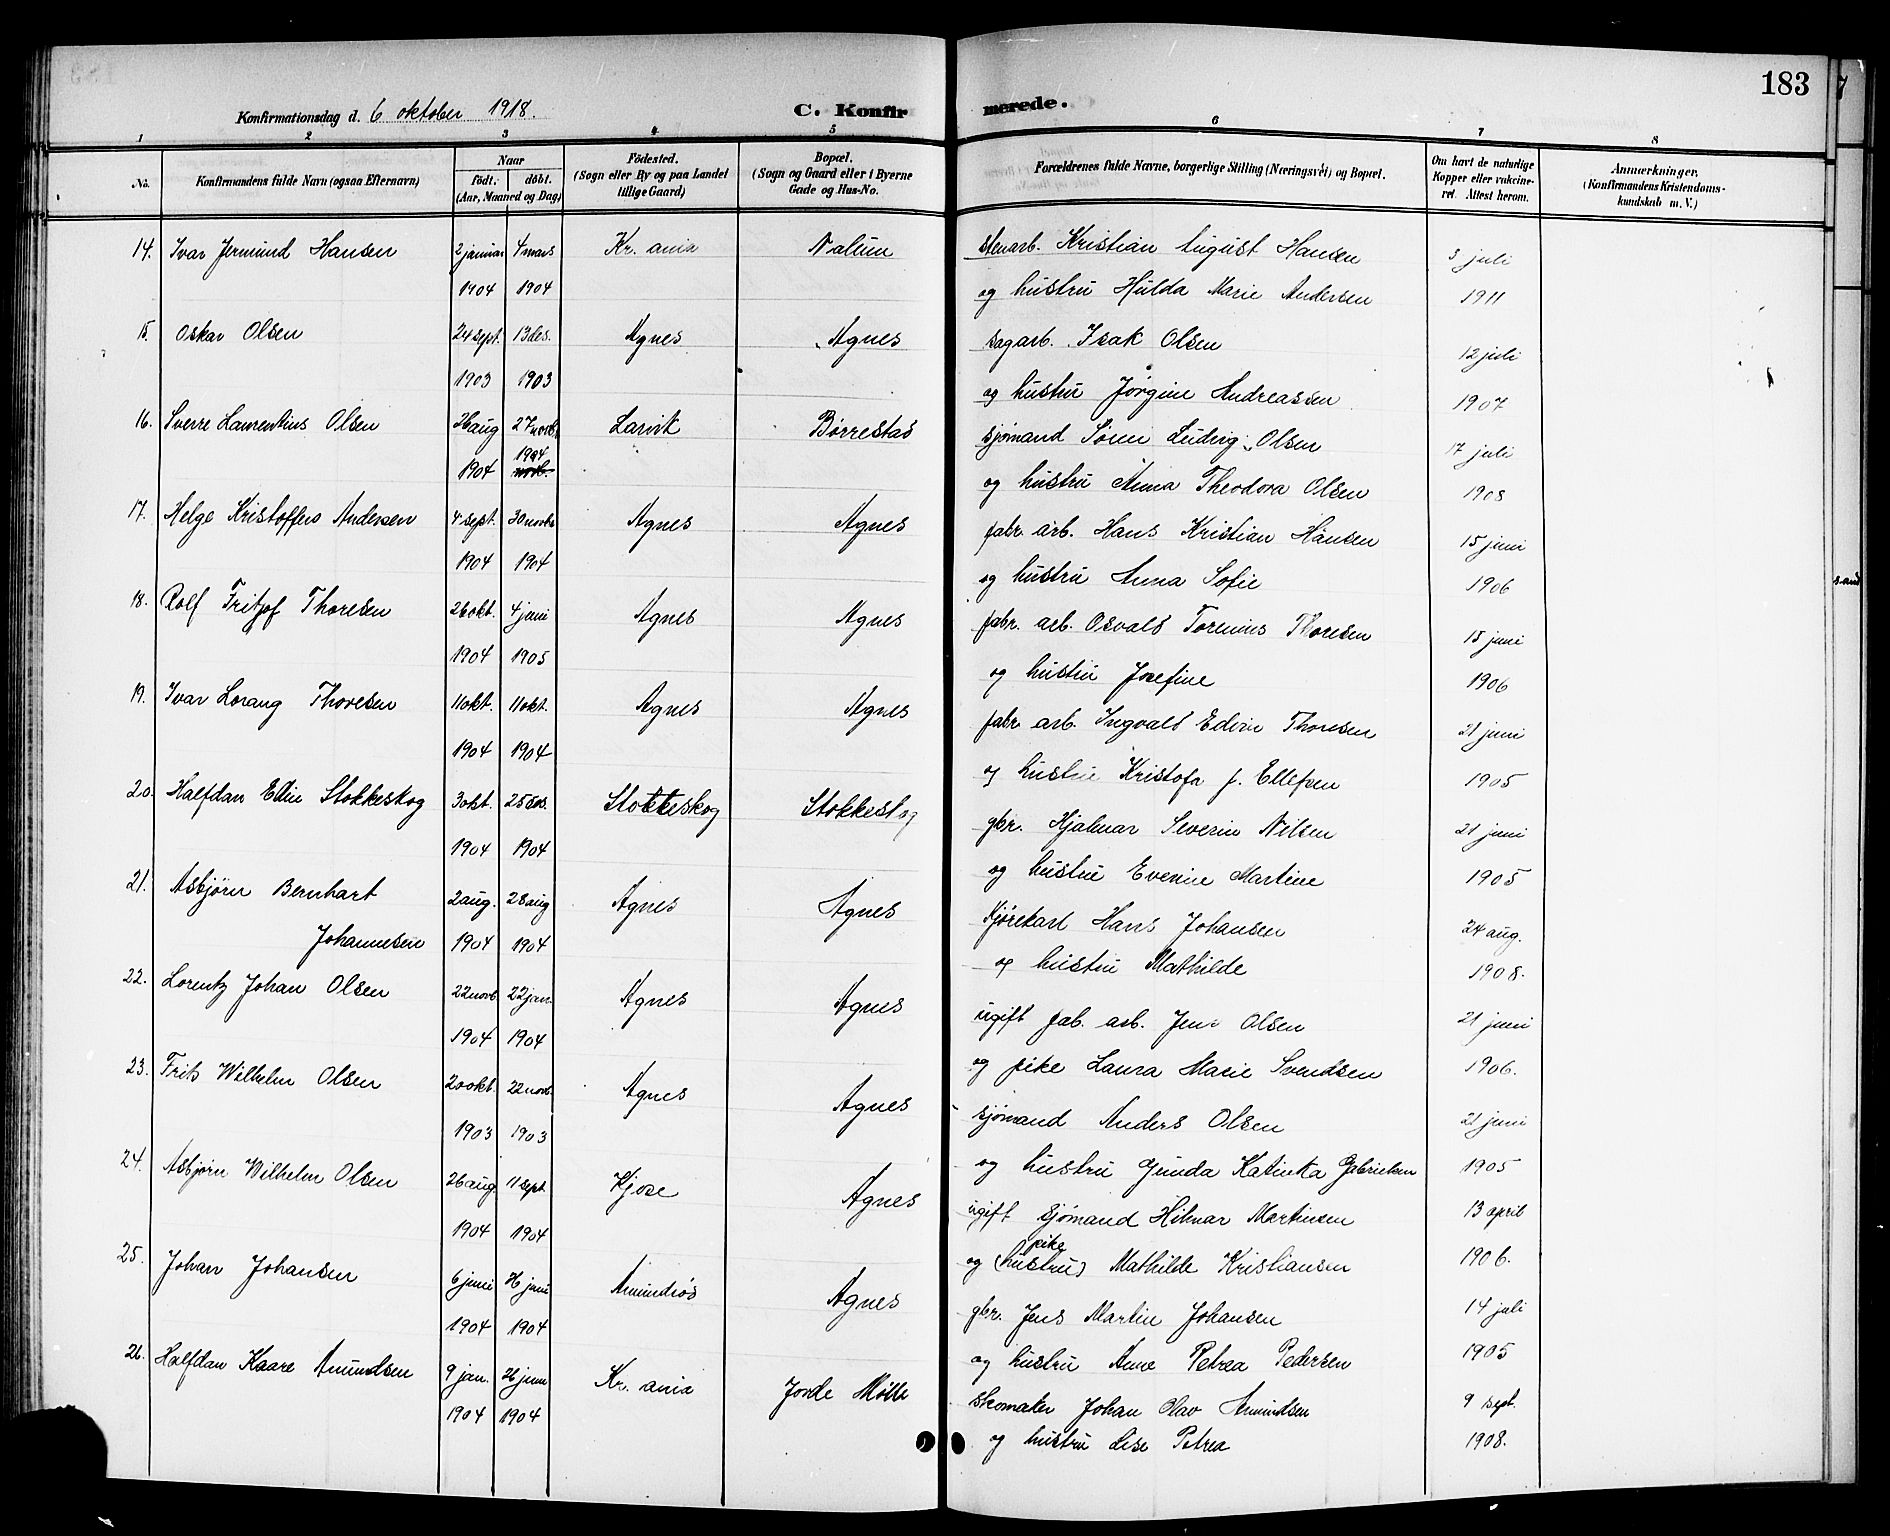 183
Konfirmationsdag d. 6 oktober 1918.
C. Konfirmerede.
1 2 3 4 5 6 7 8
No.
Konfirmandens fulde Navn (ogsaa Efternavn)
Naar
født. døbt.
(Aar, Maaned og Dag)
Fødested.
(Sogn eller By og paa Landet
tillige Gaard)
Bopæl.
(Sogn og Gaard eller i Byerne
Gade og Hus-No.
Forældrenes fulde Navne, borgerlige Stilling (Næringsvei) og Bopæl.
Om havt de naturlige
Kopper eller vakcine-
ret. Attest herom.
Anmærkninger.
(Konfirmandens Kristendoms-
kundskab m. V.)
14. Ivar Jermund Hansen 2 januar 4 mars Kr. ania Nalum stenarb. Kristian August Hansen 3 juli
1904 1904 og hustru Hulda Marie Andersen 1911
15. Oskar Olsen 24 sept. 13 des. Agnes Agnes sagarb. Isak Olsen 12 juli
1903 1903 og hustru Jørgine Andreassen 1907
16. Sverre Laurentius Olsen 26 aug 27 novb. Larvik Børrestad sjømand Søren Ludvig Olsen 17 juli
1904 1904 novb. og hustru Anna Theodora Olsen 1908
17. Helge Kristoffers Andersen 4 sept. 30 novb. Agnes Agnes fabr. arb. Hans Kristian Hansen 15 juni
1904 1904 og hustru Anna Sofie 1906
18. Rolf Fritjof Thoresen 26 okt. 4 juni Agnes Agnes fabr. arb. Osvald Torenius Thoresen 15 juni
1904 1905 og hustru Josefine 1906
19. Ivar Lorang Thoresen 11 okt. 11 okt. Agnes Agnes fabr. arb. Ingvald Edvin Thoresen 21 juni
1904 1904 og hustru Kristofa f. Ellefsen 1905
20. Halfdan Edin Stokkeskog 3 okt. 25 des. Stokkeskog Stokkeskog gbr. Hjalmar Severin Nilsen 21 juni
1904 1904 og hustru Evenine Martine 1905
21. Asbjørn Bernhart 2 aug. 28 aug Agnes Agnes Kjørekarl Hans Johansen 24 aug.
Johannesen 1904 1904 og hustru Mathilde 1908.
22. Lorentz Johan Olsen 22 novb 22 jan. Agnes Agnes ugift fab. arb. Jens Olsen 21 juni
1904 1904 og pike Laura Marie Svendsen 1906.
23. Frits Wilhelm Olsen 20 okt. 22 novb. Agnes Agnes sjømand Anders Olsen 21 juni
1903 1903 og hustru Gunda Katinka Gabrielsen 1905
24. Asbjørn Wilhelm Olsen 26 aug. 11 sept. Kjose Agnes ugift sjømand Hilmar Martinsen 13 april
1904 1904 og (hustru) pike Mathilde Kristiansen 1906.
25. Johan Johansen 6 juni 26 juni Amundrød Agnes gbr. Jens Martin Johansen 14 juli
1904 1904 og hustru Anne Petrea Pedersen 1905
26. Halfdan Kaare Amundsen 9 jan. 26 juni Kr. ania Jorde Mølle skomaker Johan Olav Amundsen 9 sept.
1904 1904 og hustru Lise Petrea 1908.